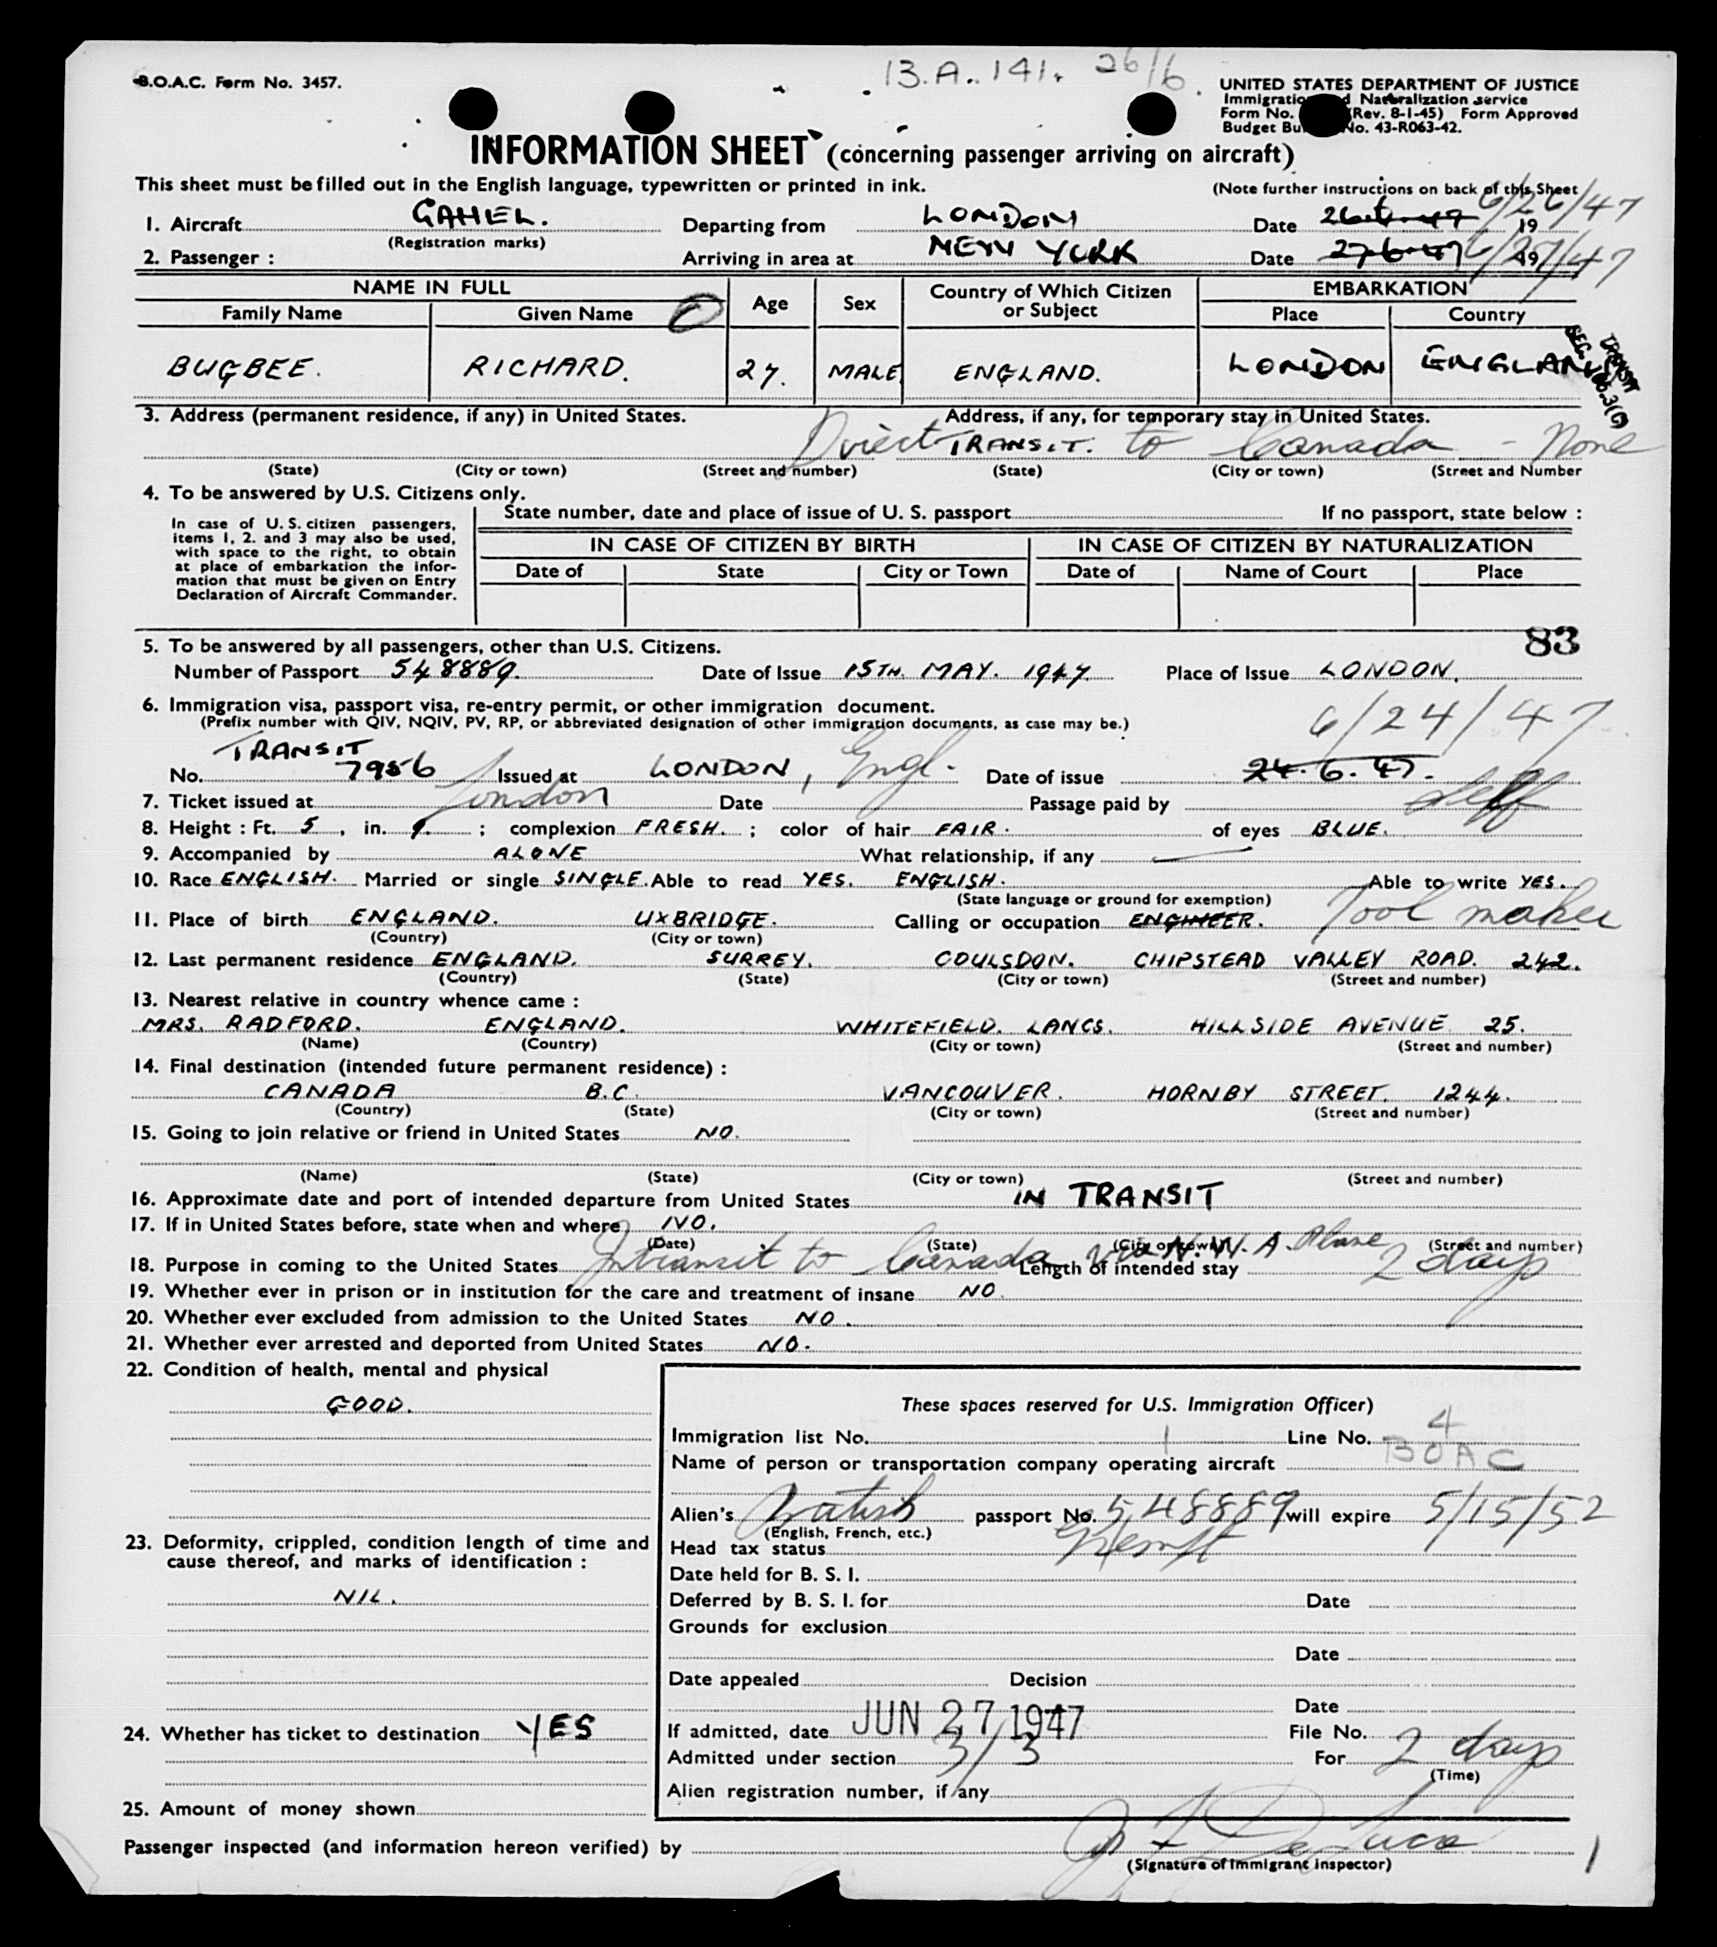 B.O.A.C. Form No. 3457.
B.A. 141. 26/6.
UNITED STATES DEPARTMENT OF JUSTICE
Naturalization service
Form No. (Rev. 8-1-45) Form Approved
No. 43-R063-42.
INFORMATION SHEET (concerning passenger arriving on aircraft)
This sheet must be filled out in the English language, typewritten or printed in ink. (Note further instructions on back of this Sheet
1. Aircraft GAHEL. Departing from LONDON Date 26.6.47 19 6/26/47
(Registration marks)
2. Passenger : Arriving in area at NEW YORK Date 27.6.47 19 6/27/47
NAME IN FULL Age Sex Country of Which Citizen or Subject EMBARKATION
Family Name Given Name Place Country
BUGBEE. RICHARD. 27. MALE ENGLAND. LONDON ENGLAND
TRANSIT
SEC. 3(3)
3. Address (permanent residence, if any) in United States. Address, if any, for temporary stay in United States.
Direct TRANSIT. to Canada - None
(State) (City or town) (Street and number) (State) (City or town) (Street and Number
4. To be answered by U.S. Citizens only.
State number, date and place of issue of U. S. passport If no passport, state below :
In case of U. S. citizen passengers,
items 1, 2. and 3 may also be used,
with space to the right, to obtain
at place of embarkation the infor-
mation that must be given on Entry
Declaration of Aircraft Commander.
IN CASE OF CITIZEN BY BIRTH IN CASE OF CITIZEN BY NATURALIZATION
Date of State City or Town Date of Name of Court Place
83
5. To be answered by all passengers, other than U.S. Citizens.
Number of Passport 548889. Date of Issue 15TH. MAY. 1947. Place of Issue LONDON.
6. Immigration visa, passport visa, re-entry permit, or other immigration document.
(Prefix number with QIV, NQIV, PV, RP, or abbreviated designation of other immigration documents, as case may be.)
6/24/47
TRANSIT
No. 7956 Issued at LONDON, Engl. Date of issue 24.6.47.
7. Ticket issued at London Date Passage paid by Self
8. Height : Ft. 5, in. 9. ; complexion FRESH. ; color of hair FAIR. of eyes BLUE.
9. Accompanied by ALONE What relationship, if any
10. Race ENGLISH. Married or single SINGLE. Able to read YES. ENGLISH. Able to write YES.
(State language or ground for exemption)
11. Place of birth ENGLAND. UXBRIDGE. Calling or occupation ENGINEER. Tool maker
(Country) (City or town)
12. Last permanent residence ENGLAND. SURREY. COULSDON. CHIPSTEAD VALLEY ROAD. 242.
(Country) (State) (City or town) (Street and number)
13. Nearest relative in country whence came :
MRS. RADFORD. ENGLAND. WHITEFIELD. LANCS. HILLSIDE AVENUE 25.
(Name) (Country) (City or town) (Street and number)
14. Final destination (intended future permanent residence) :
CANADA B.C. VANCOUVER. HORNBY STREET. 1244.
(Country) (State) (City or town) (Street and number)
15. Going to join relative or friend in United States NO.
(Name) (State) (City or town) (Street and number)
16. Approximate date and port of intended departure from United States IN TRANSIT
17. If in United States before, state when and where NO.
(Date) (State) (City or town) (Street and number)
18. Purpose in coming to the United States Intransit to Canada via N.W.A. Plane Length of intended stay 2 days
19. Whether ever in prison or in institution for the care and treatment of insane NO.
20. Whether ever excluded from admission to the United States NO.
21. Whether ever arrested and deported from United States NO.
22. Condition of health, mental and physical
GOOD.
23. Deformity, crippled, condition length of time and
cause thereof, and marks of identification :
NIL.
24. Whether has ticket to destination YES
25. Amount of money shown
These spaces reserved for U.S. Immigration Officer)
Immigration list No. 1 Line No. 4
Name of person or transportation company operating aircraft BOAC
Alien's British passport No. 548889 will expire 5/15/52
(English, French, etc.)
Head tax status Exempt
Date held for B. S. I.
Deferred by B. S. I. for Date
Grounds for exclusion
Date
Date appealed Decision
Date
If admitted, date JUN 27 1947 File No.
Admitted under section 3/3 For 2 days
(Time)
Alien registration number, if any
Passenger inspected (and information hereon verified) by
(Signature of Immigrant Inspector)
1